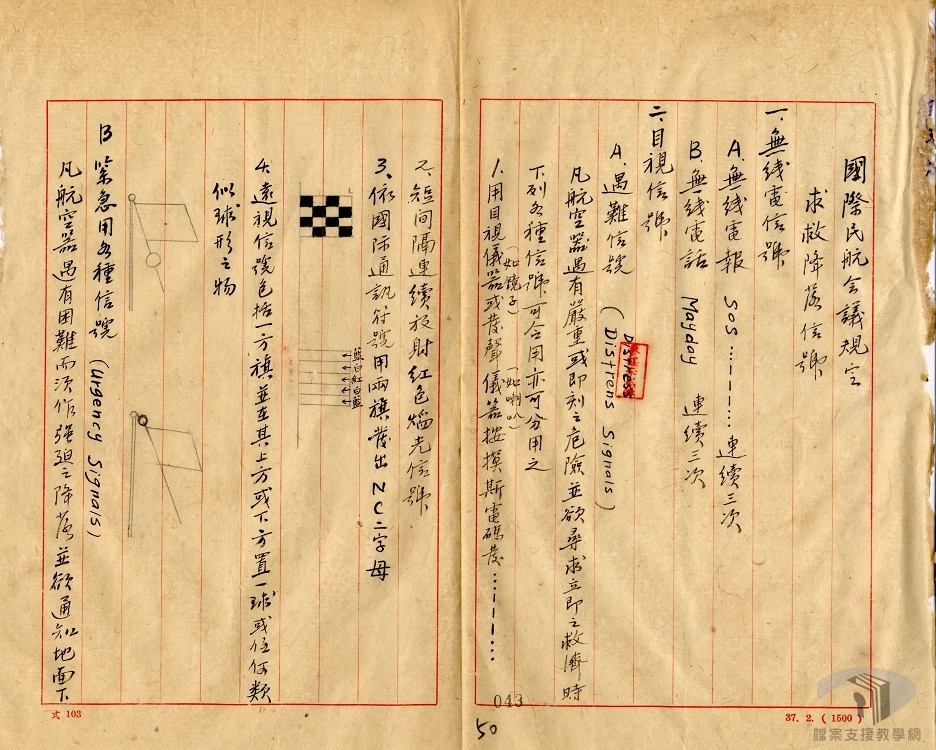 國際民航会議規定
求救降落信號
一、無线電信號
A. 無线電報 SOS ...---... 連續三次
B. 無线電話 Mayday 連續三次
二、目視信號
A. 遇難信號 (Distrens Signals)
Distress
凡航空器遇有嚴重或即刻之危險並欲尋求立即之救濟時
下列各種信號可合用亦可分用之
1. 用目視儀器(如鏡子)或發聲儀器(如喇叭)按摸斯電碼發...---...
043
50
37. 2. (1500)
2、短间隔連續放射紅色熖光信號
3、依國际通訊符號用兩旗發出NC二字母
藍白紅白藍
4.遠視信號包括一方旗並在其上方或下方置一球或任何類
似球形之物
B 緊急用各種信號 (Urgency Signals)
凡航空器遇有困難而须作强迫之降落並欲通知地面下
式 103
檔案支援教學網